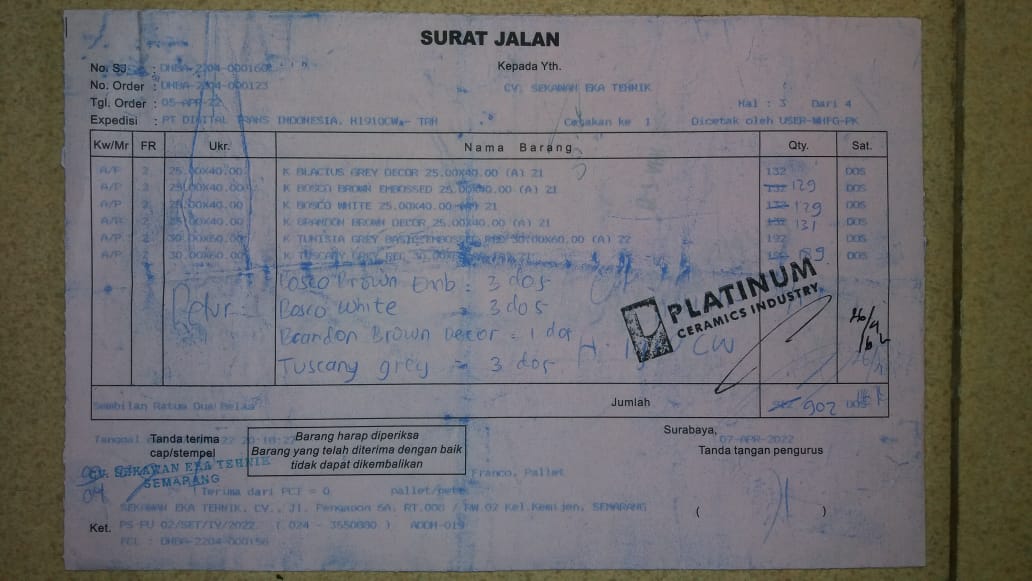 SURAT JALAN
No. SJ. : DHBA-2204-000160
Kepada Yth.
No. Order : DHBA-2204-000123
CV. SEKAWAN EKA TEHNIK
Tgl. Order : 05-APR-22
Hal : 3 Dari 4
Expedisi : PT DIGITAL TRANS INDONESIA. H1910CW - TRH
Cetakan ke 1 Dicetak oleh USER-WHFG-PK
Kw/Mr FR Ukr. Nama Barang Qty. Sat.
A/P 2 25.00X40.00 K BLACIUS GREY DECOR 25.00X40.00 (A) 21 132 DOS
A/P 2 25.00X40.00 K BOSCO BROWN EMBOSSED 25.00X40.00 (A) 21 132 129 DOS
A/P 2 25.00X40.00 K BOSCO WHITE 25.00X40.00 (A) 21 132 129 DOS
A/P 2 25.00X40.00 K BRANDON BROWN DECOR 25.00X40.00 (A) 21 132 131 DOS
A/P 2 30.00X60.00 K TUNISIA GREY BASIC EMBOSSED REC 30.00X60.00 (A) 22 192 DOS
A/P 2 30.00X60.00 K TUSCANY GREY REC 189 DOS
Bosco Brown Emb : 3 dos
Retur : Bosco White = 3 dos
Brandon Brown Decor = 1 dos
Tuscany grey = 3 dos
PLATINUM
CERAMICS INDUSTRY
CW
Sembilan Ratus Dua Belas
Jumlah 912 902 DOS
Surabaya, 07-APR-2022
Tanggal
Tanda terima
cap/stempel
Barang harap diperiksa
Barang yang telah diterima dengan baik
tidak dapat dikembalikan
Tanda tangan pengurus
CV. SEKAWAN EKA TEHNIK
SEMARANG
Franco, Pallet
Terima dari PCI = 0 pallet/peti
SEKAWAN EKA TEHNIK, CV., Jl. Pengapon 6A, RT.006 / RW.02 Kel.Kemijen, SEMARANG
( )
Ket. PS FU 02/SET/IV/2022 ( 024 - 3550880 ) ADDM-019
PCL : DHBA-2204-000156